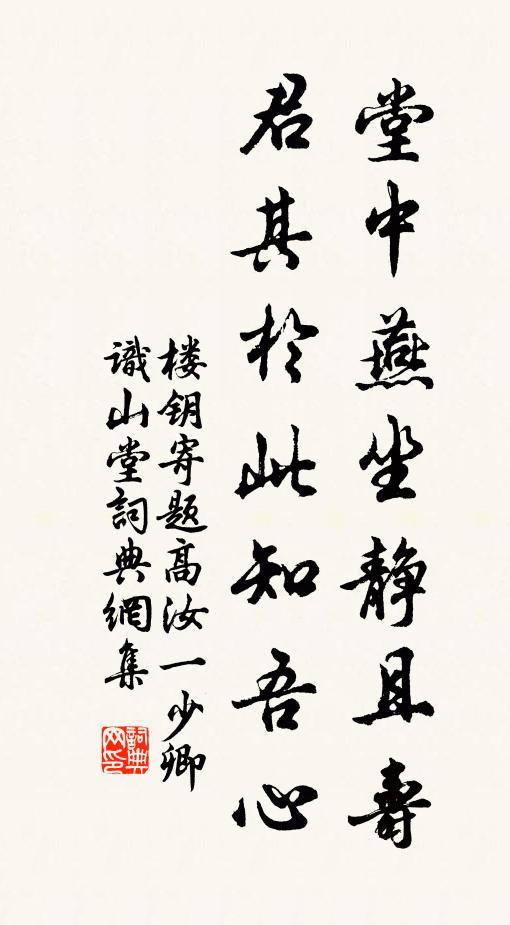 堂中燕坐静且壽
君其於此知吾心
楼钥寄题高汝一少卿
識山堂詞典網集
詞典
网印